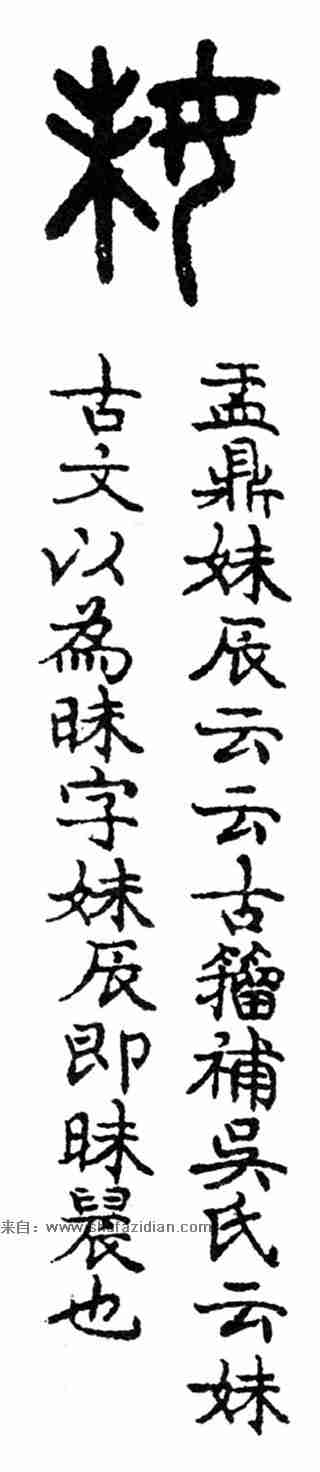 妹
盂鼎妹辰云云古籀補吳氏云妹
古文以為昧字妹辰即昧晨也
来自：www.shufazidian.com